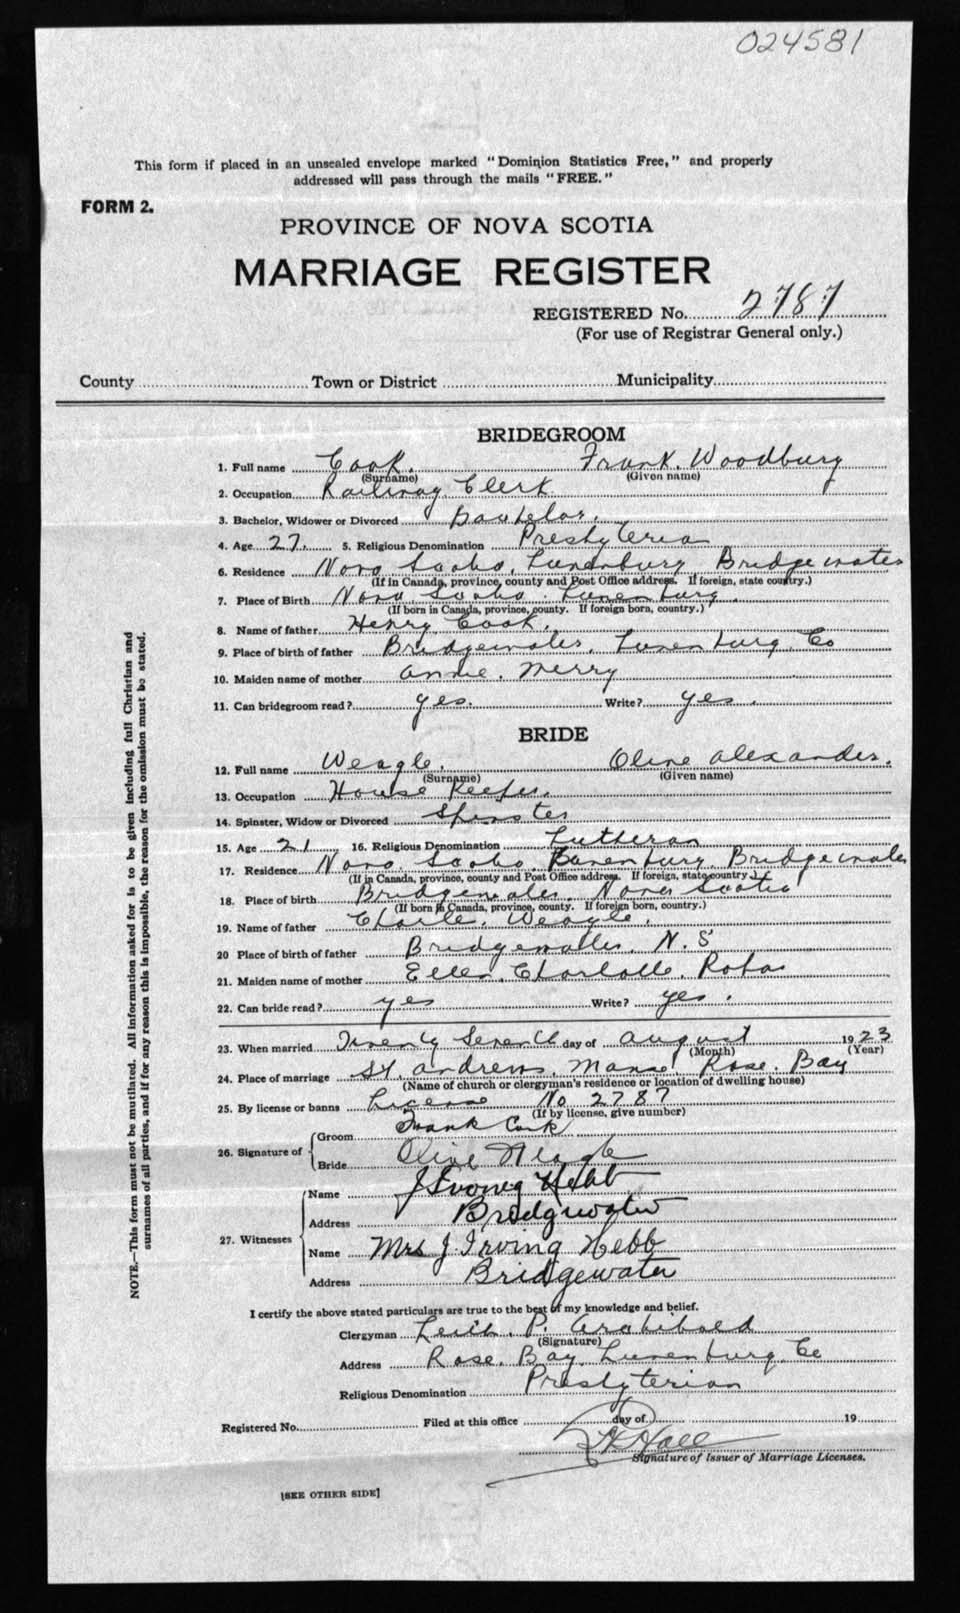 024581
This form if placed in an unsealed envelope marked "Dominion Statistics Free," and properly
addressed will pass through the mails "FREE."
FORM 2.
PROVINCE OF NOVA SCOTIA
MARRIAGE REGISTER
REGISTERED No. 2787
(For use of Registrar General only.)
County Town or District Municipality
BRIDEGROOM
1. Full name Cook. Frank. Woodbury
(Surname) (Given name)
2. Occupation Railway Clerk
3. Bachelor, Widower or Divorced Bachelor.
4. Age 27. 5. Religious Denomination Presbyterian
6. Residence Nova Scotia. Lunenburg Bridgewater
(If in Canada, province, county and Post Office address. If foreign, state country.)
7. Place of Birth Nova Scotia. Lunenburg.
(If born in Canada, province, county. If foreign born, country.)
8. Name of father Henry Cook.
9. Place of birth of father Bridgewater. Lunenburg. Co
10. Maiden name of mother Annie. Merry
11. Can bridegroom read? yes. Write? yes.
BRIDE
12. Full name Weagle. Olive Alexander.
(Surname) (Given name)
13. Occupation House Keeper.
14. Spinster, Widow or Divorced Spinster
15. Age 21 16. Religious Denomination Lutheran
17. Residence Nova Scotia. Lunenburg. Bridgewater
(If in Canada, province, county and Post Office address. If foreign, state country.)
18. Place of birth Bridgewater. Nova Scotia
(If born in Canada, province, county. If foreign born, country.)
19. Name of father Weagle.
20 Place of birth of father Bridgewater. N. S
21. Maiden name of mother Ellen. Charlotte.
22. Can bride read? yes Write? yes.
23. When married Twenty Seventh day of August 1923
(Month) (Year)
24. Place of marriage St Andrews. Manse Rose. Bay
(Name of church or clergyman's residence or location of dwelling house)
25. By license or banns License No 2787
(If by license, give number)
26. Signature of Groom Frank Cook
Bride Olive Weagle
27. Witnesses Name J Irving Hebb
Address Bridgewater
Name Mrs J. Irving Hebb
Address Bridgewater
I certify the above stated particulars are true to the best of my knowledge and belief.
Clergyman Leith. P. Archibald
(Signature)
Address Rose. Bay. Lunenburg. Co
Religious Denomination Presbyterian
Registered No. Filed at this office day of 19
Hall
Signature of Issuer of Marriage Licenses.
[SEE OTHER SIDE]
NOTE.—This form must not be mutilated. All information asked for is to be given including full Christian and
surnames of all parties, and if for any reason this is impossible, the reason for the omission must be stated.